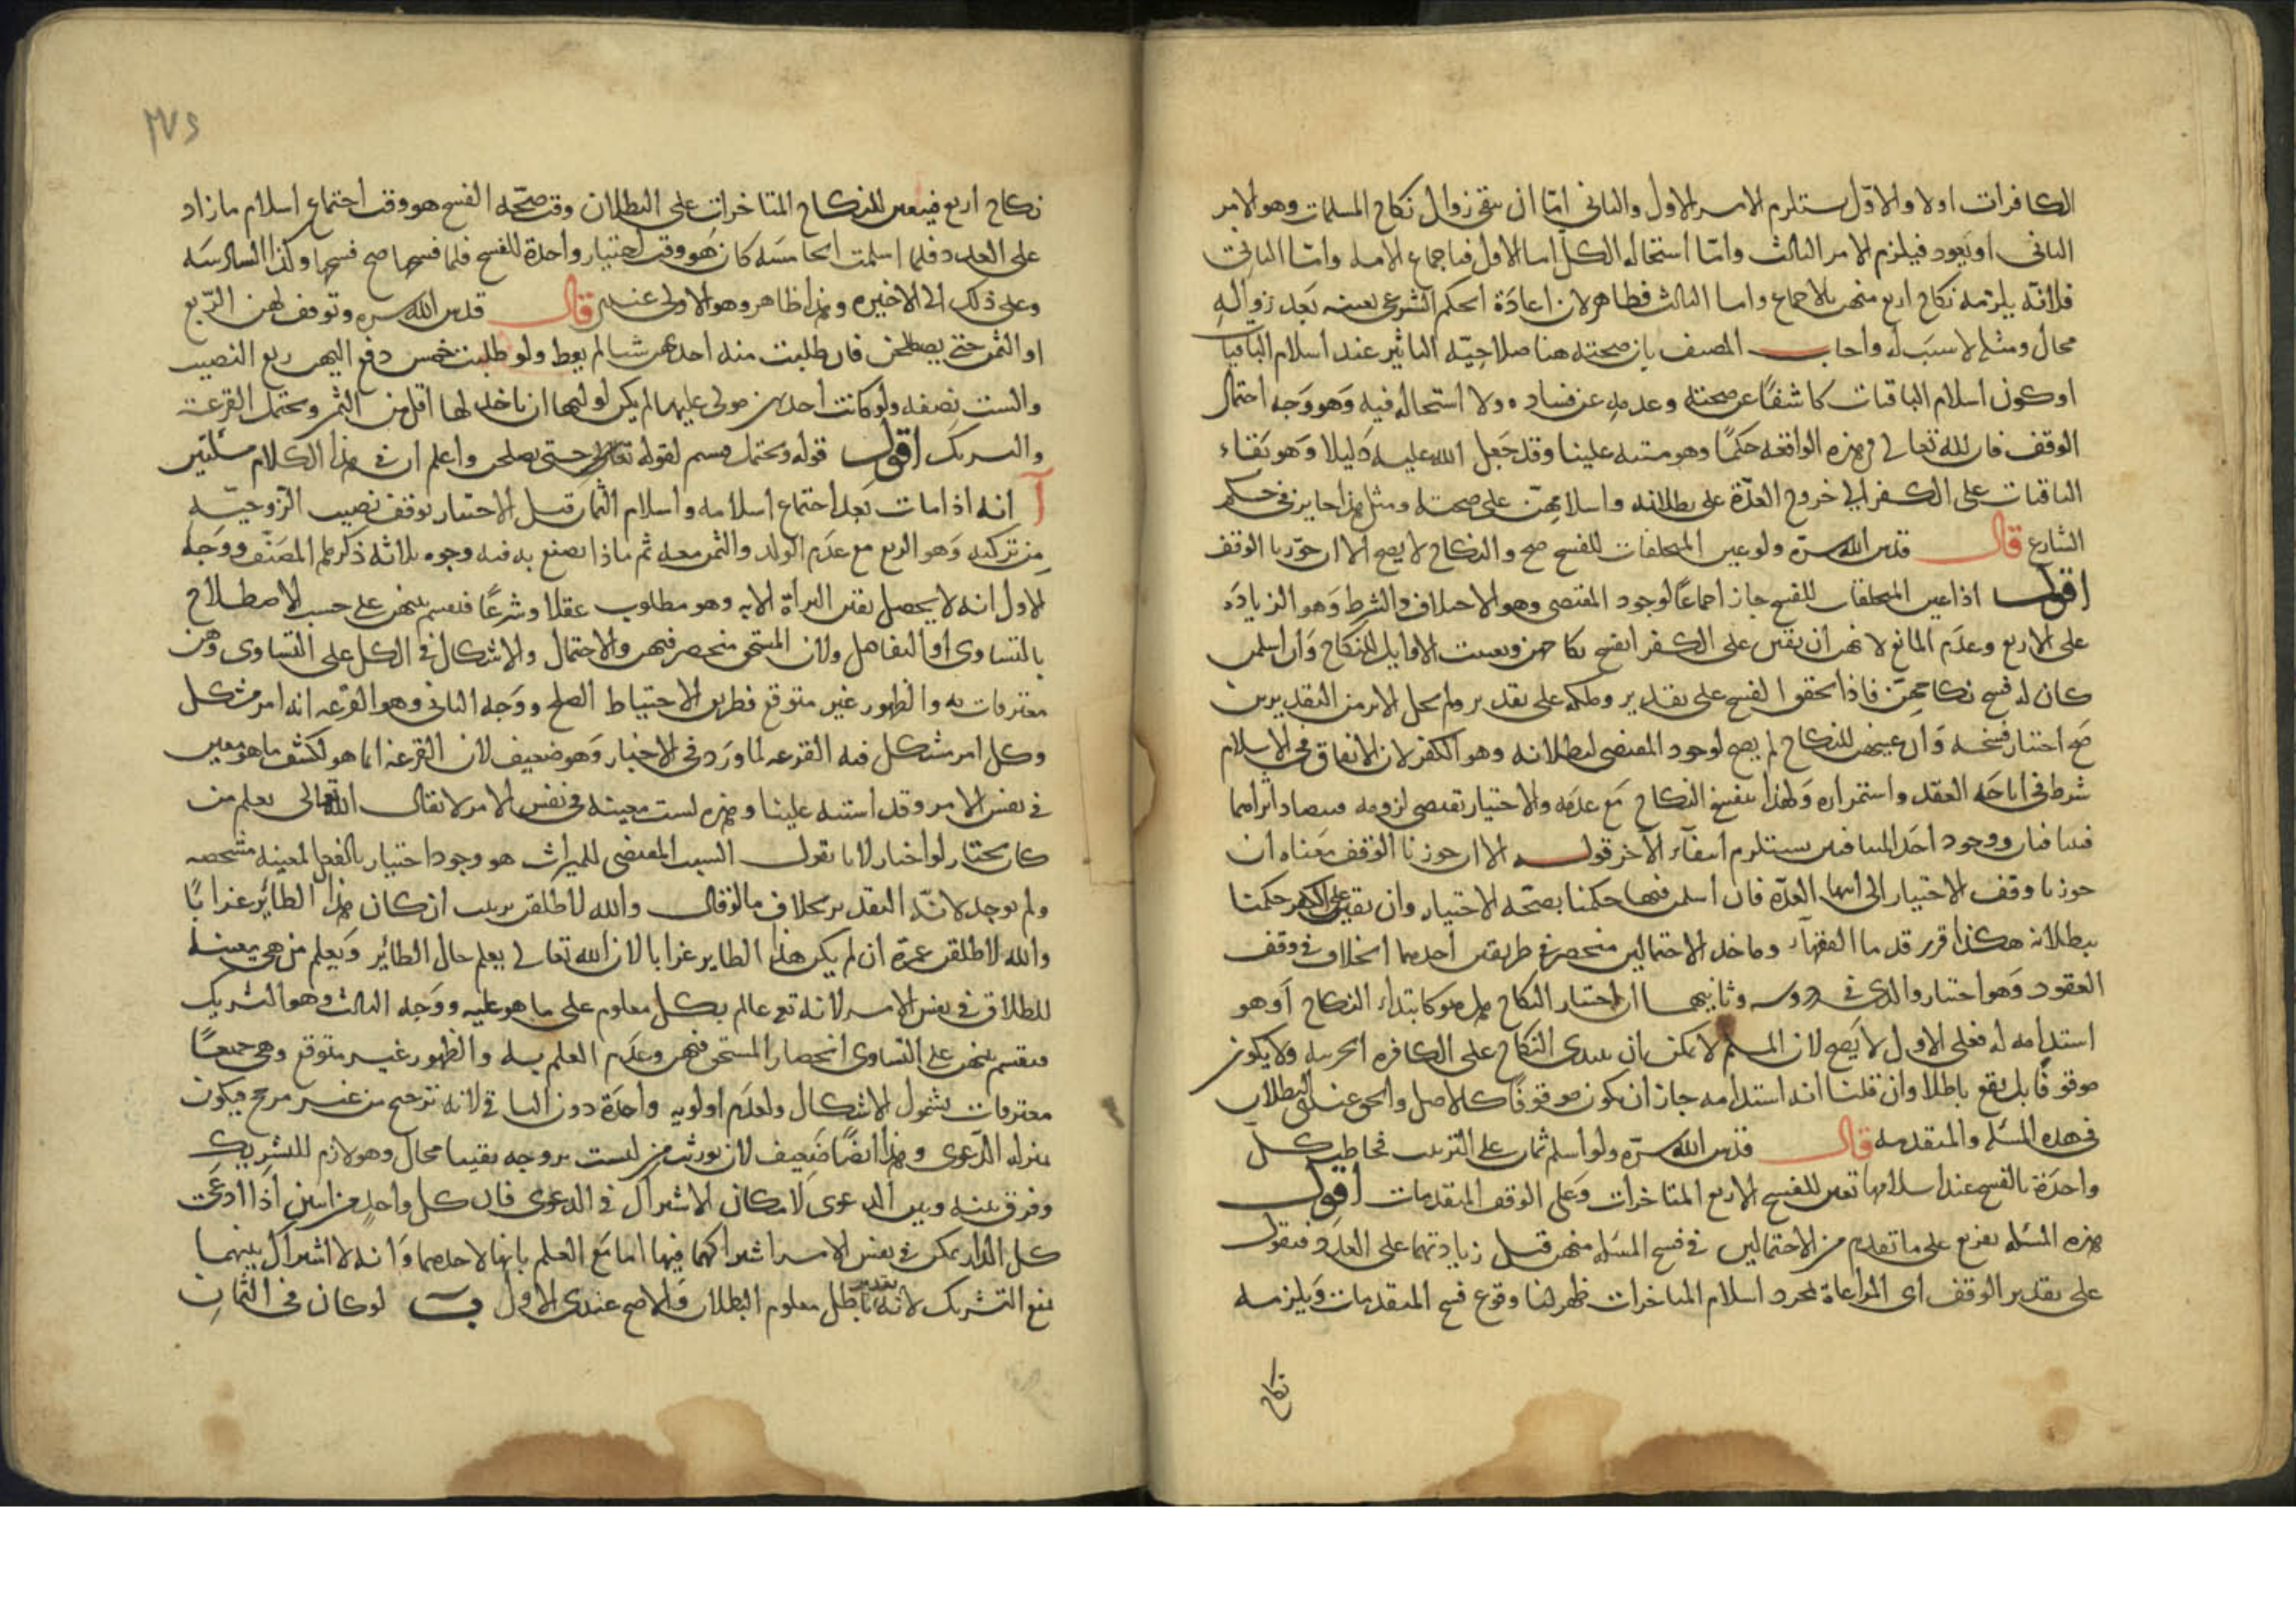 الكافرات اولا والاول يستلزم الامر الاول والثاني اما ان يبقى زوال نكاح المسلمات وهو الامر
الثاني او يعود فيلزم الامر الثالث واما استحالة الكل اما الاول فباجماع الامة واما الثاني
فلانه يلزمه نكاح اربع منهن بالاجماع واما الثالث فظاهر لان اعادة الحكم الشرعي بعينه بعد زواله
محال ومثله لا سبب له واجاب المصنف بان صحته هنا صلاحية التاثير عند اسلام الباقيات
او كون اسلام الباقيات كاشفا عن صحته وعدمه عن فساده ولا استحالة فيه وهو وجه احتمال
الوقف فان لله تعالى في هذه الواقعة حكما وهو مشتبه علينا وقد جعل الله عليه دليلا وهو بقاء
الباقيات على الكفر الى خروج العدة على بطلانه واسلامهن على صحته ومثل هذا جايز في حكم
الشارع قال قدس الله سره ولو عين المتخلفات للفسخ صح والنكاح لا يصح الا ان جوزنا الوقف
اقول اذا عين المتخلفات للفسخ جاز اجماعا لوجود المقتضي وهو الاختلاف والشرط وهو الزيادة
على الاربع وعدم المانع لانهن ان بقين على الكفر انفسخ نكاحهن وتعينت الاوايل للنكاح وان اسلمن
كان له فسخ نكاحهن فاذا تحقق الفسخ على تقدير وملكه على تقدير ولم يخل الامر من التقديرين
صح اختيار فسخه وان عينهن للنكاح لم يصح لوجود المقتضي لبطلانه وهو الكفر لان الاتفاق في الاسلام
شرط في اباحة العقد واستمراره ولهذا ينفسخ النكاح مع عدمه والاختيار يقتضي لزومه فيتضاد اثراهما
فيتنافيان ووجود احد المتنافيين يستلزم انتفاء الآخر قوله الا ان جوزنا الوقف معناه ان
جوزنا وقف الاختيار الى انتهاء العدة فان اسلمن فيها حكمنا بصحة الاختيار وان بقين على الكفر حكمنا
ببطلانه هكذا قرر قدماء الفقهاء وماخذ الاحتمالين منحصر في طريقين احدهما الخلاف في وقف
العقود وهو اختيار والدي في دروسه وثانيهما ان اختيار النكاح هل هو كابتداء النكاح او هو
استدامة له فعلى الاول لا يصح لان المسلم لا يمكن بان يبتدي النكاح على الكافرة الحربية ولا يكون
موقوفا بل يقع باطلا وان قلنا انه استدامة جاز ان يكون موقوفا كالاصل والحق عندي البطلان
في هذه المسئلة والمتقدمة قال قدس الله سره ولو اسلم ثمان على الترتيب فخاطب كل
واحدة بالفسخ عند اسلامها تعين للفسخ الاربع المتاخرات وعلى الوقف المتقدمات اقول
هذه المسئلة تفريع على ما تقدم من الاحتمالين في فسخ المسلمة منهن قبل زيادتها على العدد فنقول
على تقدير الوقف اي المراعاة لمجرد اسلام المتاخرات ظهر لنا وقوع فسخ المتقدمات ويلزمه
نكاح
٢٧٤
نكاح اربع فيتعين للنكاح المتاخرات على البطلان وقت صحة الفسخ هو وقت اجتماع اسلام ما زاد
على العدد فلما اسلمت الخامسة كان هو وقت اختيار واحدة للفسخ فلما فسخها صح فسخها وكذا السادسة
وعلى ذلك الى الاخيرة وهذا ظاهر وهو الاولى عندي قال قدس الله سره وتوقف لهن الربع
او الثمن حتى يصطلحن فان طلبت منه احدهن شيا لم يعط ولو طلبت خمس دفع اليهن ربع النصيب
والست نصفه ولو كانت احدهن مولى عليها لم يكن لوليها ان ياخذ لها اقل من الثمن ويحتمل القرعة
والتشريك اقول قوله ويحتمل قسيم لقوله توقف حتى يصطلحن واعلم ان في هذا الكلام مسئلتين
آ انه اذا مات بعد اجتماع اسلامه واسلام الثمان قبل الاختيار توقف نصيب الزوجية
من تركته وهو الربع مع عدم الولد والثمن معه ثم ماذا يصنع به فيه وجوه ثلاثة ذكرها المصنف ووجه
الاول انه لا يحصل يقين البرأة الا به وهو مطلوب عقلا وشرعا فيقسم بينهن على حسب الاصطلاح
بالتساوي او التفاضل ولان المستحق منحصر فيهن والاحتمال والاشكال في الكل على التساوي وهن
معترفات به والظهور غير متوقع فطريق الاحتياط الصلح ووجه الثاني وهو القرعة انه امر مشكل
وكل امر مشكل فيه القرعة لما ورد في الاخبار وهو ضعيف لان القرعة انما هو لكشف ما هو معين
في نفس الامر وقد اشتبه علينا وهذه ليست معينة في نفس الامر لا يقال الله تعالى يعلم من
كان يختار لو اختار لانا نقول السبب المقتضي للميراث هو وجود اختيار بالفعل لمعينة متشخصة
ولم يوجد لانه التقدير بخلاف ما لو قال والله لاطلقن زينب ان كان هذا الطائر غرابا
والله لاطلقن عمرة ان لم يكن هذا الطاير غرابا لان الله تعالى يعلم حال الطائر ويعلم من هي معينة
للطلاق في نفس الامر لانه تع عالم بكل معلوم على ما هو عليه ووجه الثالث وهو التشريك
فيقسم بينهن على التساوي انحصار المستحق فيهن وعدم العلم به والظهور غير متوقع وهي جميعا
معترفات بشمول الاشكال ولعدم اولوية واحدة دون الباقي لانه ترجيح من غير مرجح فيكون
بمنزلة الدعوى وهذا ايضا ضعيف لان توريث من ليست بزوجة يقينا محال وهو لازم للتشريك
وفرق بينه وبين الدعوى لامكان الاشتراك في الدعوى فان كل واحد من اثنين اذا ادعت
كل الدار يمكن في نفس الامر اشتراكهما فيها اما مع العلم بانها لاحدهما وانه لا اشتراك بينهما
نمنع التشريك لانه تقدير باطل معلوم البطلان والاصح عندي الاول ب لو كان في الثمان